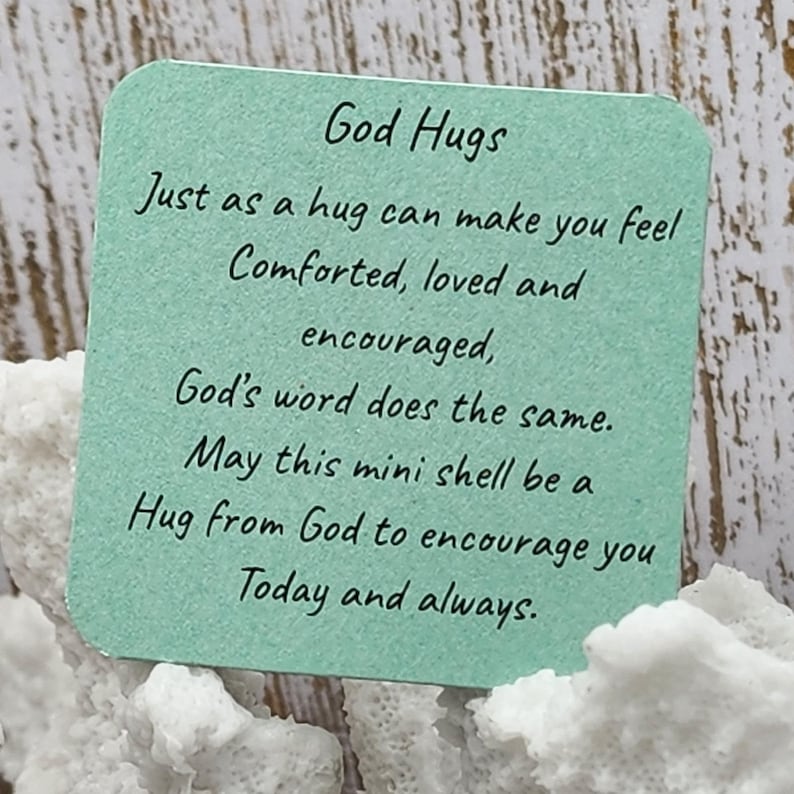 God Hugs
Just as a hug can make you feel
Comforted, loved and
encouraged,
God's word does the same.
May this mini shell be a
Hug from God to encourage you
Today and always.